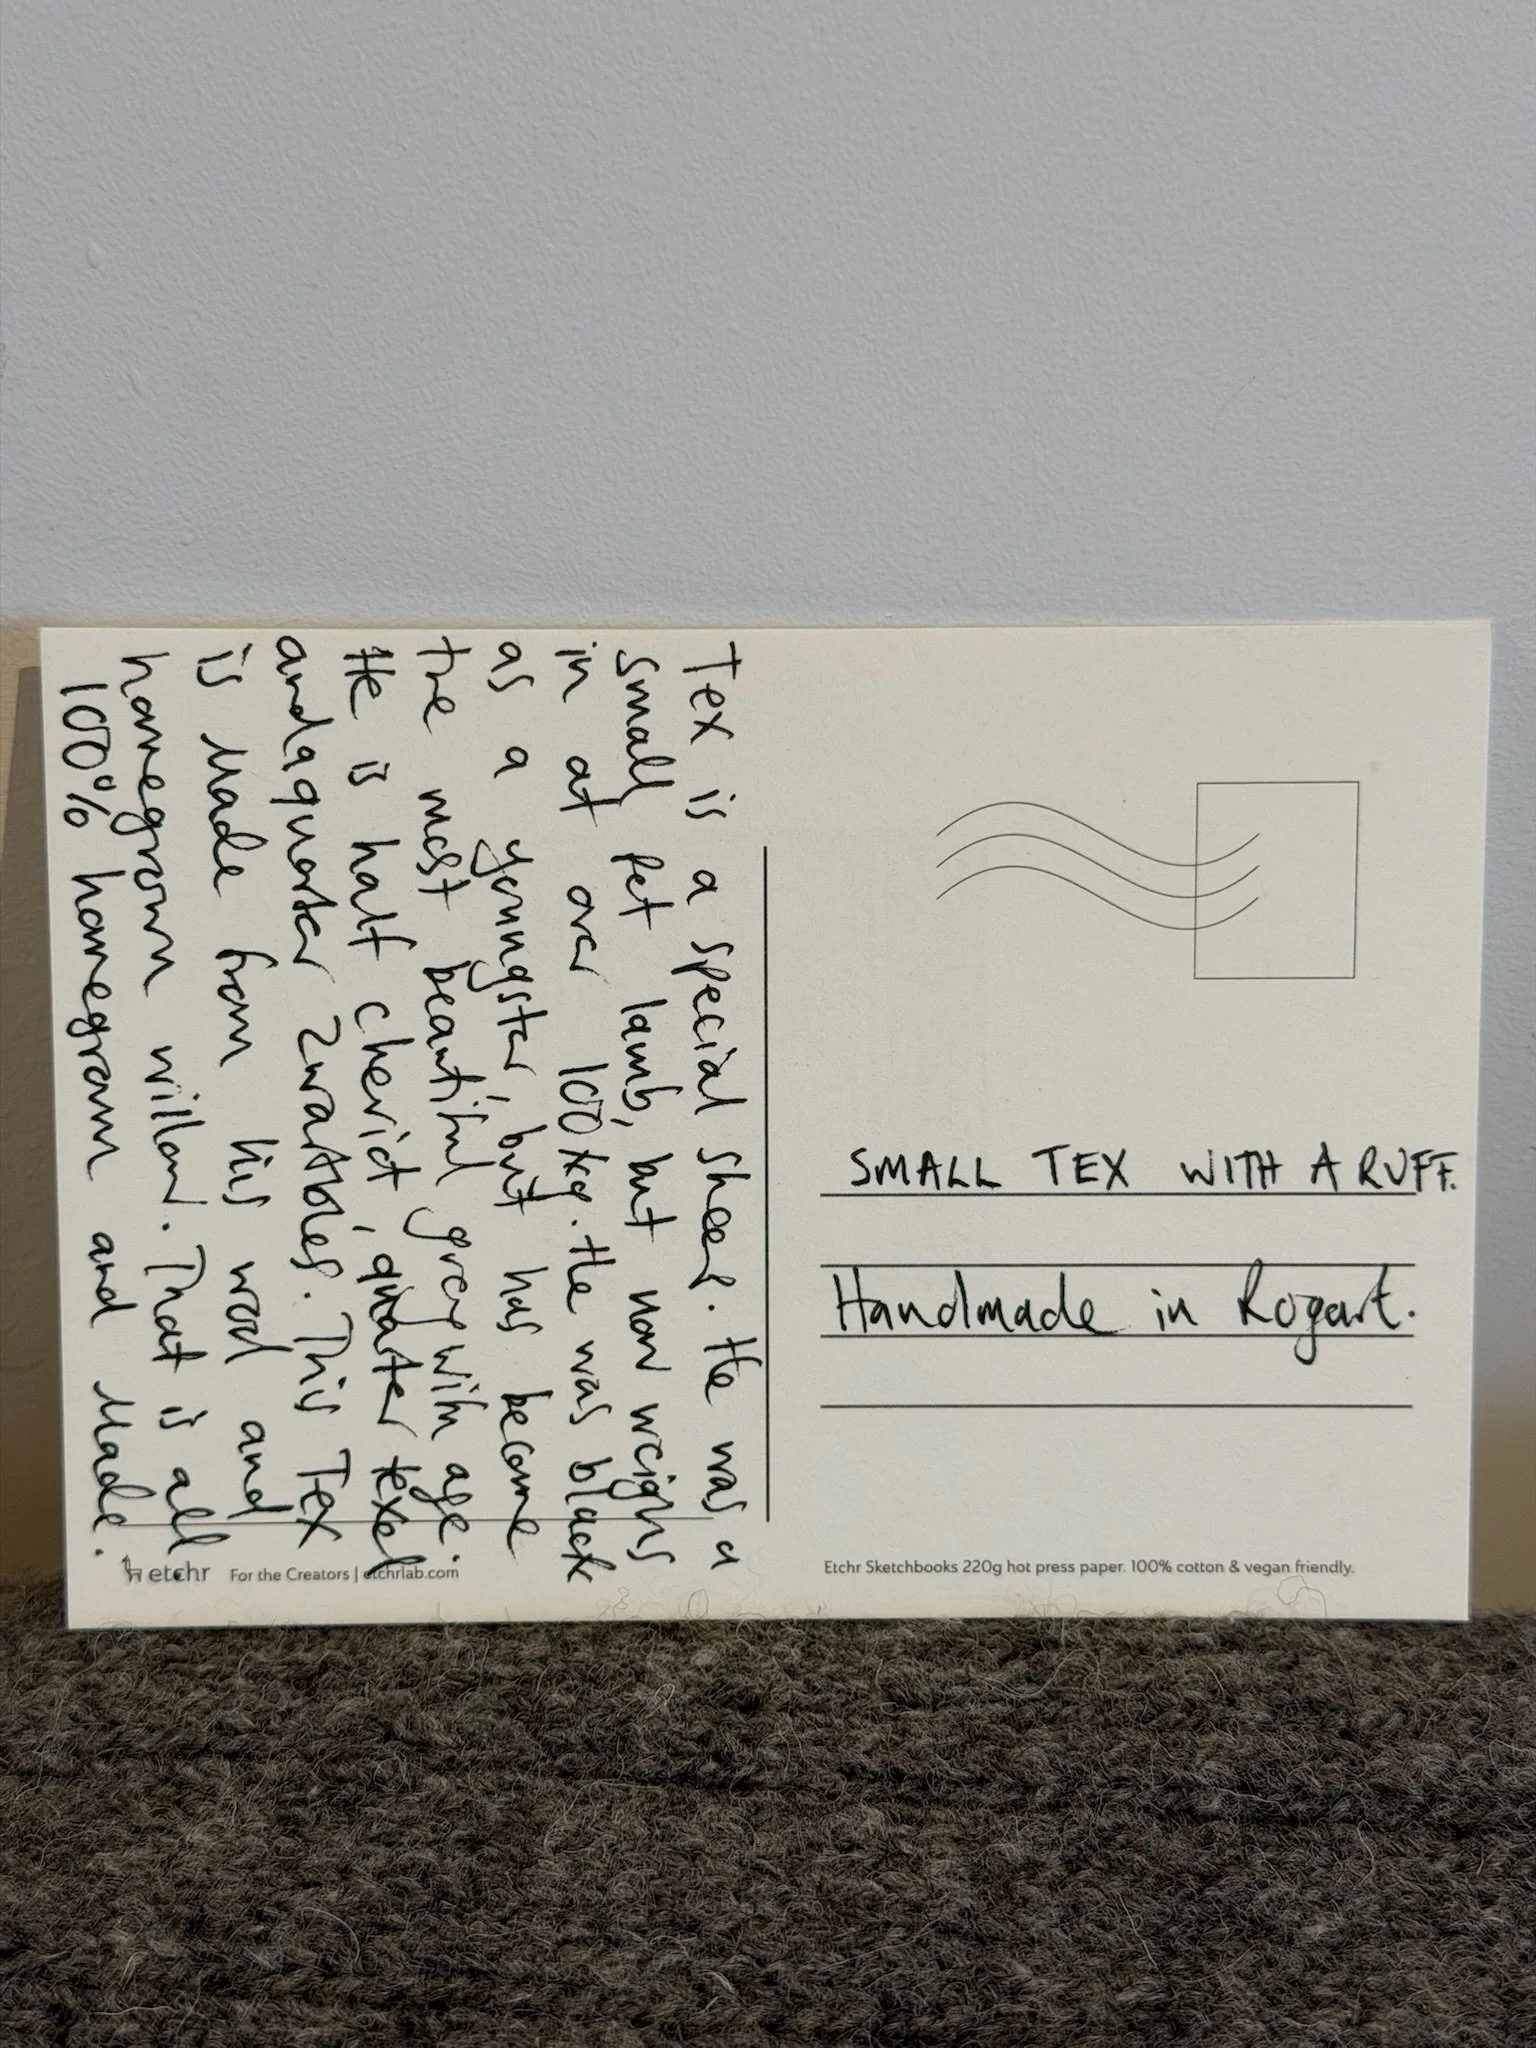 Tex is a special sheep. He was a
small pet lamb, but now weighs
in at over 100kg. He was black
as a youngster, but has become
the most beautiful grey with age.
He is half cheviot, quarter texel
and a quarter Zwartbles. This Tex
is Made from his wool and
homegrown willow. That is all
100% homegrown and Made.
SMALL TEX WITH A RUFF.
Handmade in Rogart.
etchr For the Creators | etchrlab.com
Etchr Sketchbooks 220g hot press paper. 100% cotton & vegan friendly.